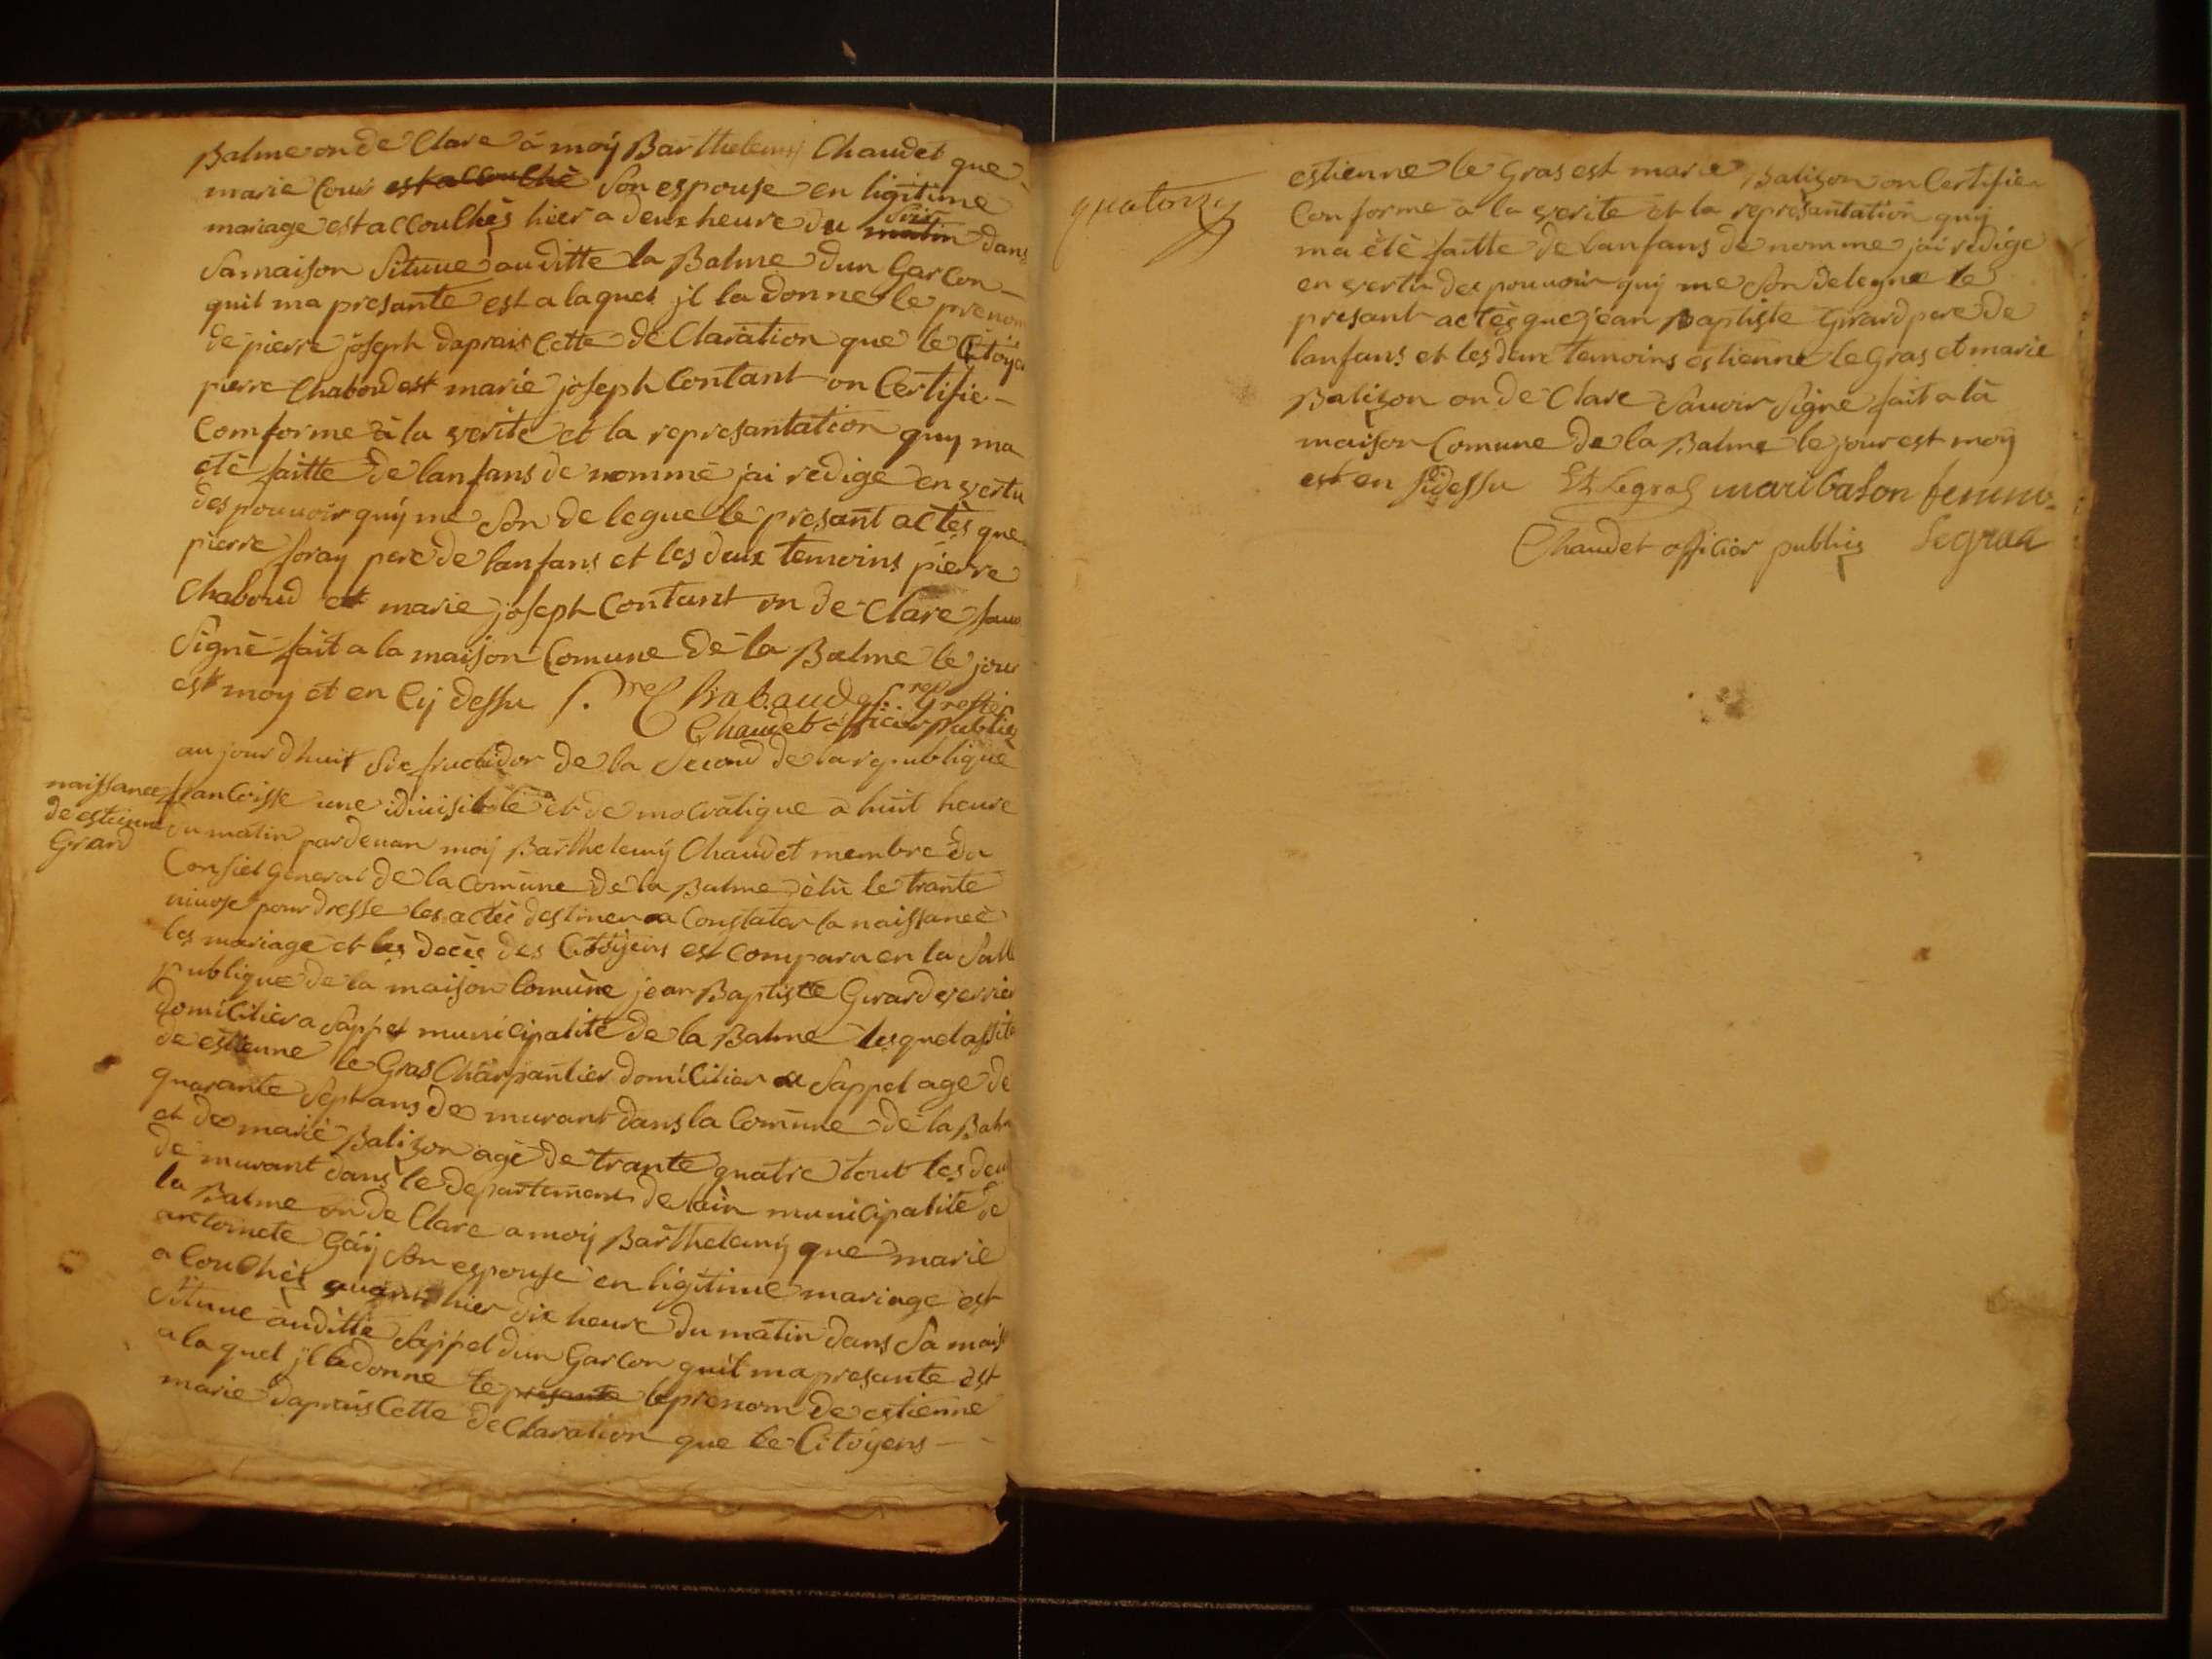 Balme on de Clare a moÿ Barthelemÿ Chaudet que
marie Cour est accouché Son espouse en ligitime
mariage est accouchés hier a deux heure du matin soir dans
Sa maison Situue au ditte la Balme dun Garcon
quil ma presante est a laquel jl la donne le prenom
de pierre joseph daprais Cette de Claration que le Citoyen
pierre Chaboud est marie joseph Contant on Certifie
Comforme a la verite et la represantation quy ma
été faitte de lanfans de nomme jai redigé en vertu
des pouuoir quÿ me Son de legue le presant actès que
pierre foray pere de lanfans et les deux temoins pierre
Chaboud est marie joseph Contant on de Clare sau
Signè fait a la maison Comune de la Balme le jour
est moy et en Cÿ dessu Chabaud Greffier
Chaudet officier publiq
au jour dhuit Six fructidor de la Second de la republique
naissance
de estienne
Girard
francoisse une idiuisible et de mocratique a huit heure
du matin pardeuan moÿ Barthelemÿ Chaudet membre du
Consiel General de la Comune de la Balme èlü le trante
niuose pour dresse les actès destiner a Constater la naissance
les mariage et les decès des Citoÿens est Comparu en la Salle
publique de la maison Comune jean Baptiste Girard verrier
domicilier a Sappel municipalité de la Balme lesquel assité
de estienne le Gras Charpantier domicilier a Sappel age de
quarante Sept ans de murant dans la Comune de la Balme
et de marie Balizon agé de trante quatre tout les deux
de murant dans le departement de lain municipalité de
la Balme on de Clare a moÿ Barthelemÿ que marie
antoinete Gaÿ Son espouse en ligitime mariage est
a Couchès auant hier dix heure du matin dans Sa mais
Situue au ditte Sappel dun Garcon quil ma presante est
a la quel jl la donne le presante le prenom de estienne
marie daprais Cette de Claration que le Citoyens
quatorze
estienne le Gras est marie Balizon on Certifie
Conforme a la verite et la represantation quÿ
ma été faitte de lanfans de nomme jai redigé
en vertu des pouuoir quÿ me Son delegue le
presant actès que jean Baptiste Girard pere de
lanfans et les deux temoins estienne le Gras et marie
Balizon on de Clare Sauoir Signé fait a la
maison Comune de la Balme le jour est moÿ
est en Sidessu Et Legras mari balson femme
Chaudet officier publiq Legras